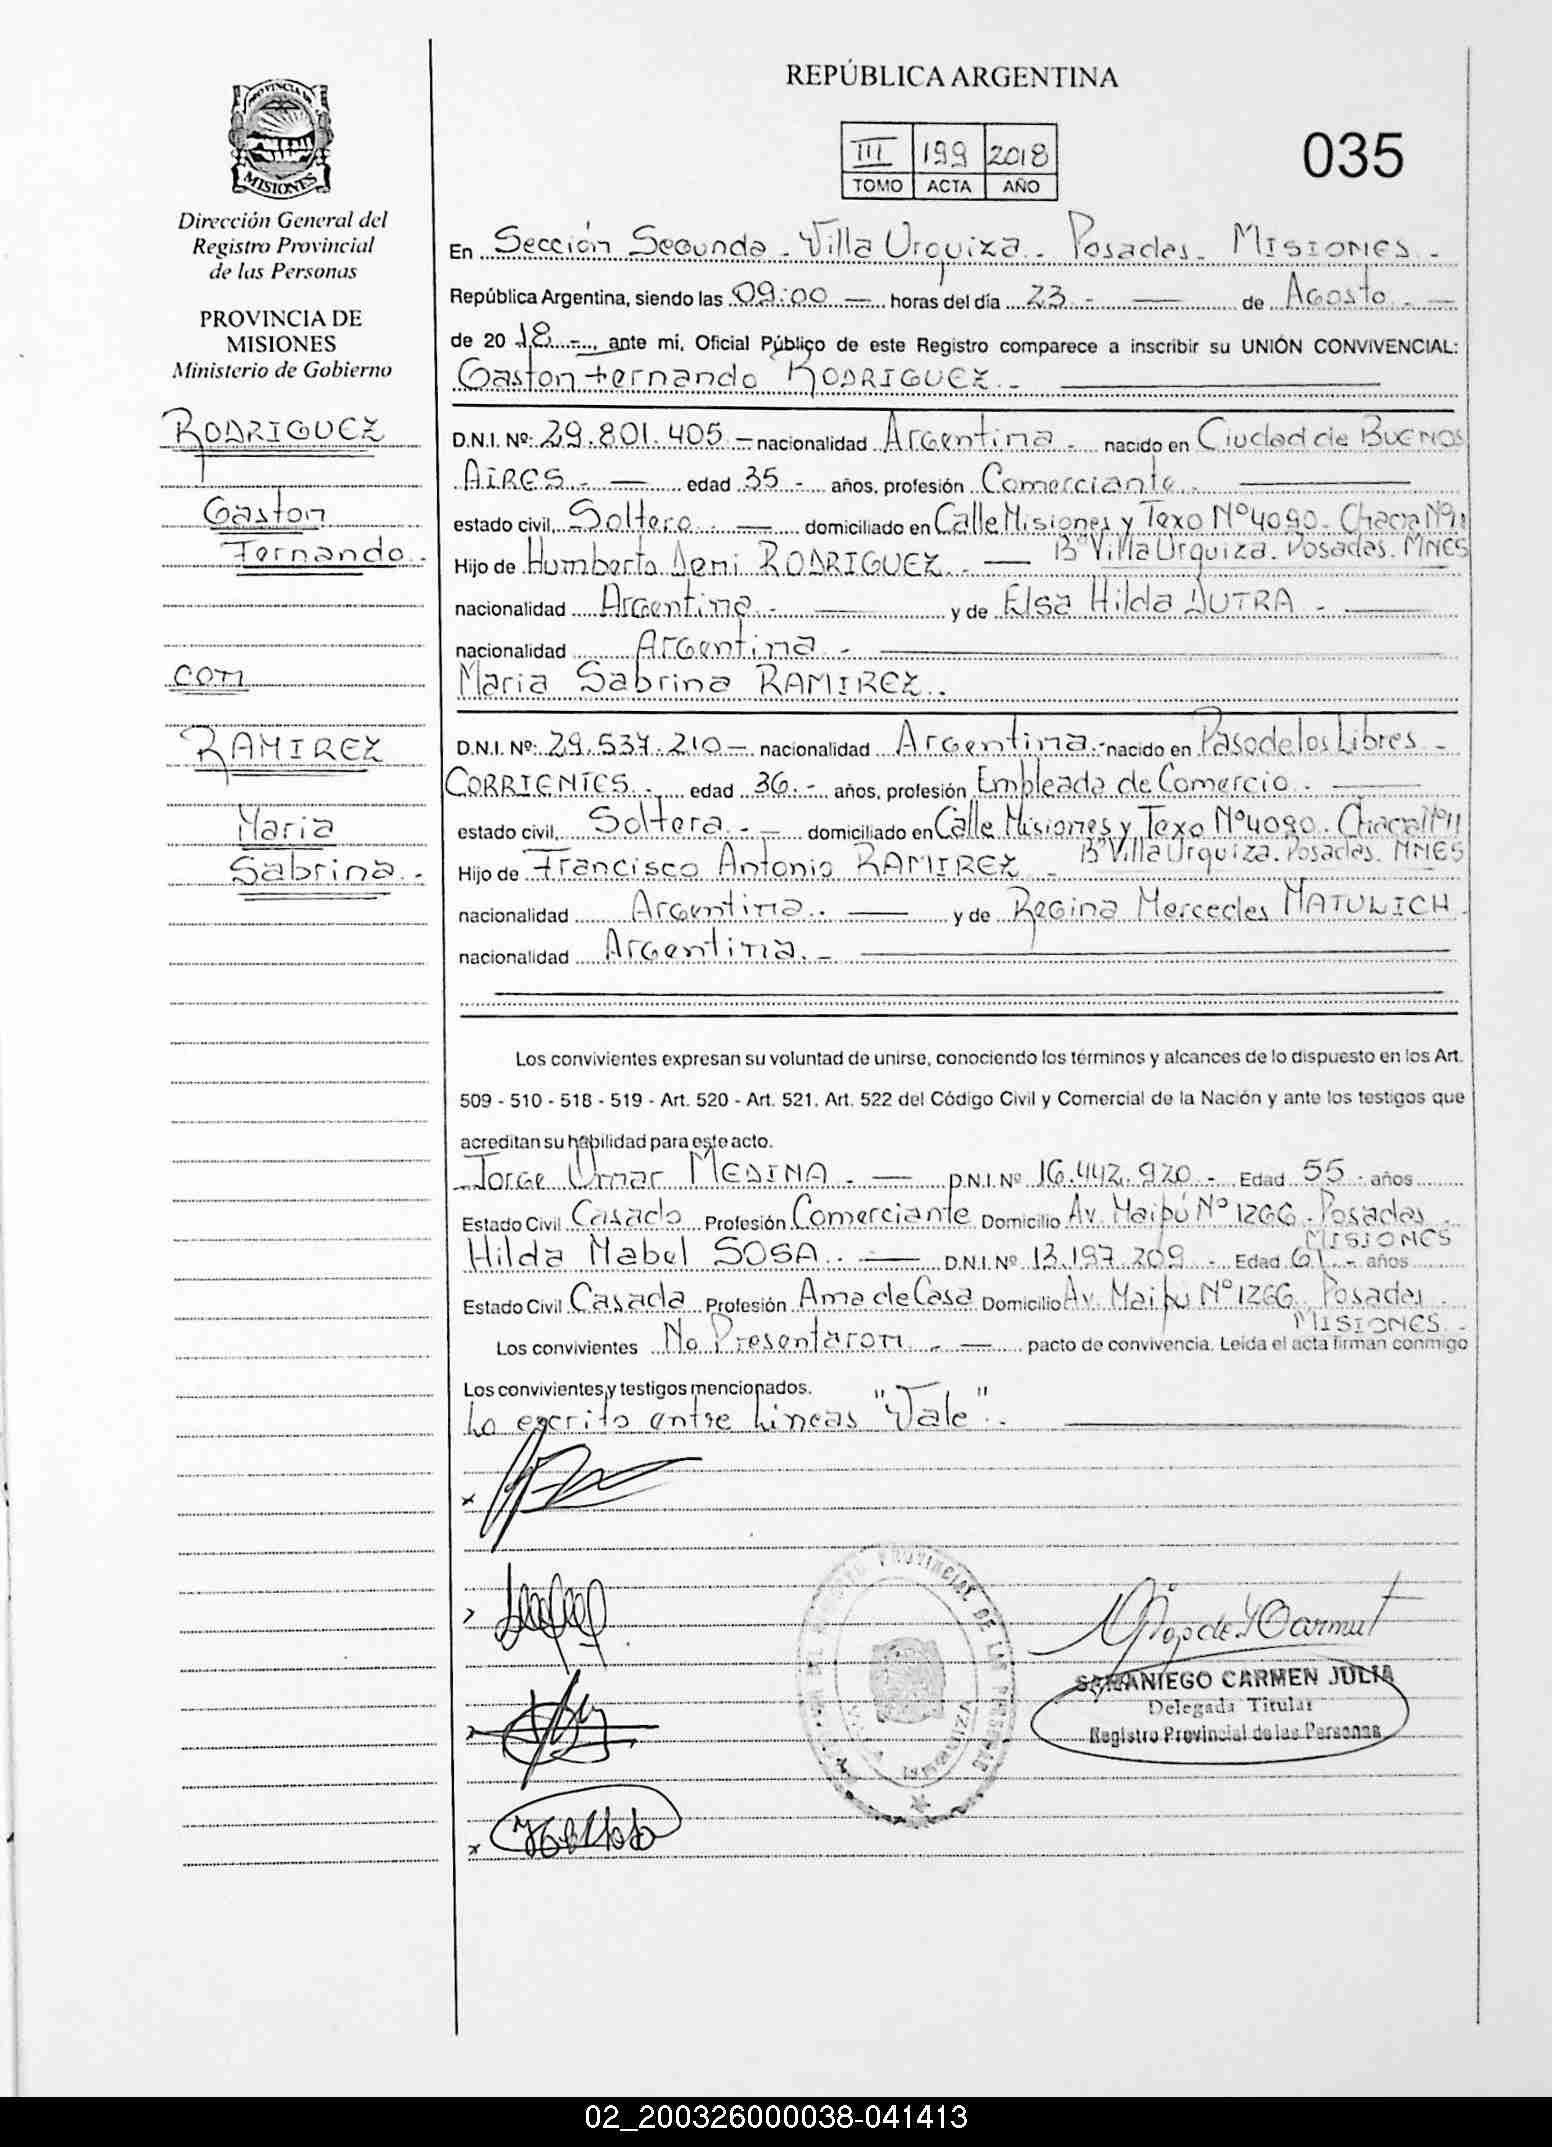 REPÚBLICA ARGENTINA
III 199 2018
TOMO ACTA AÑO
035
PROVINCIA DE
MISIONES
Dirección General del
Registro Provincial
de las Personas
PROVINCIA DE
MISIONES
Ministerio de Gobierno
RODRIGUEZ
Gaston
Fernando.-
con
RAMIREZ
Maria
Sabrina.-
En Sección Segunda - Villa Urquiza - Posadas - MISIONES -
República Argentina, siendo las 09:00 — horas del día 23 - — de Agosto - —
de 20 18 -, ante mi, Oficial Público de este Registro comparece a inscribir su UNIÓN CONVIVENCIAL:
Gaston Fernando RODRIGUEZ.-
D.N.I. Nº: 29.801.405 - nacionalidad Argentina - nacido en Ciudad de BUENOS
AIRES - — edad 35 - años, profesión Comerciante.-
estado civil, Soltero - — domiciliado en Calle Misiones y Texo Nº4090 - Chacra Nº11
Bº Villa Urquiza. Posadas. MNES
Hijo de Humberto Deni RODRIGUEZ.- —
nacionalidad Argentina - — y de Elsa Hilda DUTRA - —
nacionalidad Argentina -
Maria Sabrina RAMIREZ.-
D.N.I. Nº: 29.537.210 - nacionalidad Argentina - nacido en Paso de los Libres -
CORRIENTES - edad 36 - años, profesión Empleada de Comercio -
estado civil, Soltera - — domiciliado en Calle Misiones y Texo Nº4090 - Chacra Nº11
Bº Villa Urquiza. Posadas. MNES
Hijo de Francisco Antonio RAMIREZ -
nacionalidad Argentina - — y de Regina Mercedes MATULICH -
nacionalidad Argentina. -
Los convivientes expresan su voluntad de unirse, conociendo los términos y alcances de lo dispuesto en los Art.
509 - 510 - 518 - 519 - Art. 520 - Art. 521. Art. 522 del Código Civil y Comercial de la Nación y ante los testigos que
acreditan su habilidad para este acto.
Jorge Omar MEDINA - — D.N.I. Nº 16.442.920 - Edad 55 - años
Estado Civil Casado Profesión Comerciante Domicilio Av. Maipú Nº 1266 - Posadas
MISIONES
Hilda Mabel SOSA - — D.N.I. Nº 13.197.209 - Edad 61 - años
Estado Civil Casada Profesión Ama de Casa Domicilio Av. Maipu Nº 1266 Posadas -
MISIONES -
Los convivientes No Presentaron - — pacto de convivencia. Leída el acta firman conmigo
Los convivientes y testigos mencionados.
Lo escrito entre Lineas "Vale".-
REGISTRO PROVINCIAL DE LAS PERSONAS
SAMANIEGO CARMEN JULIA
Delegada Titular
Registro Provincial de las Personas
02_200326000038-041413